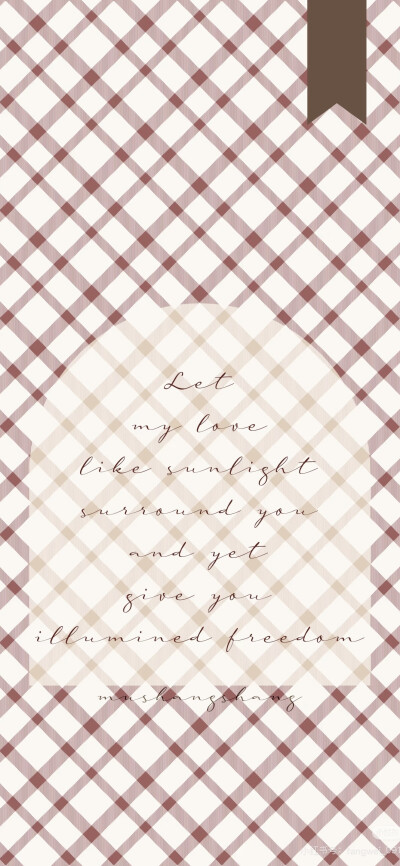 Let
my love
like sunlight
surround you
and yet
give you
illumined freedom
mushangshang